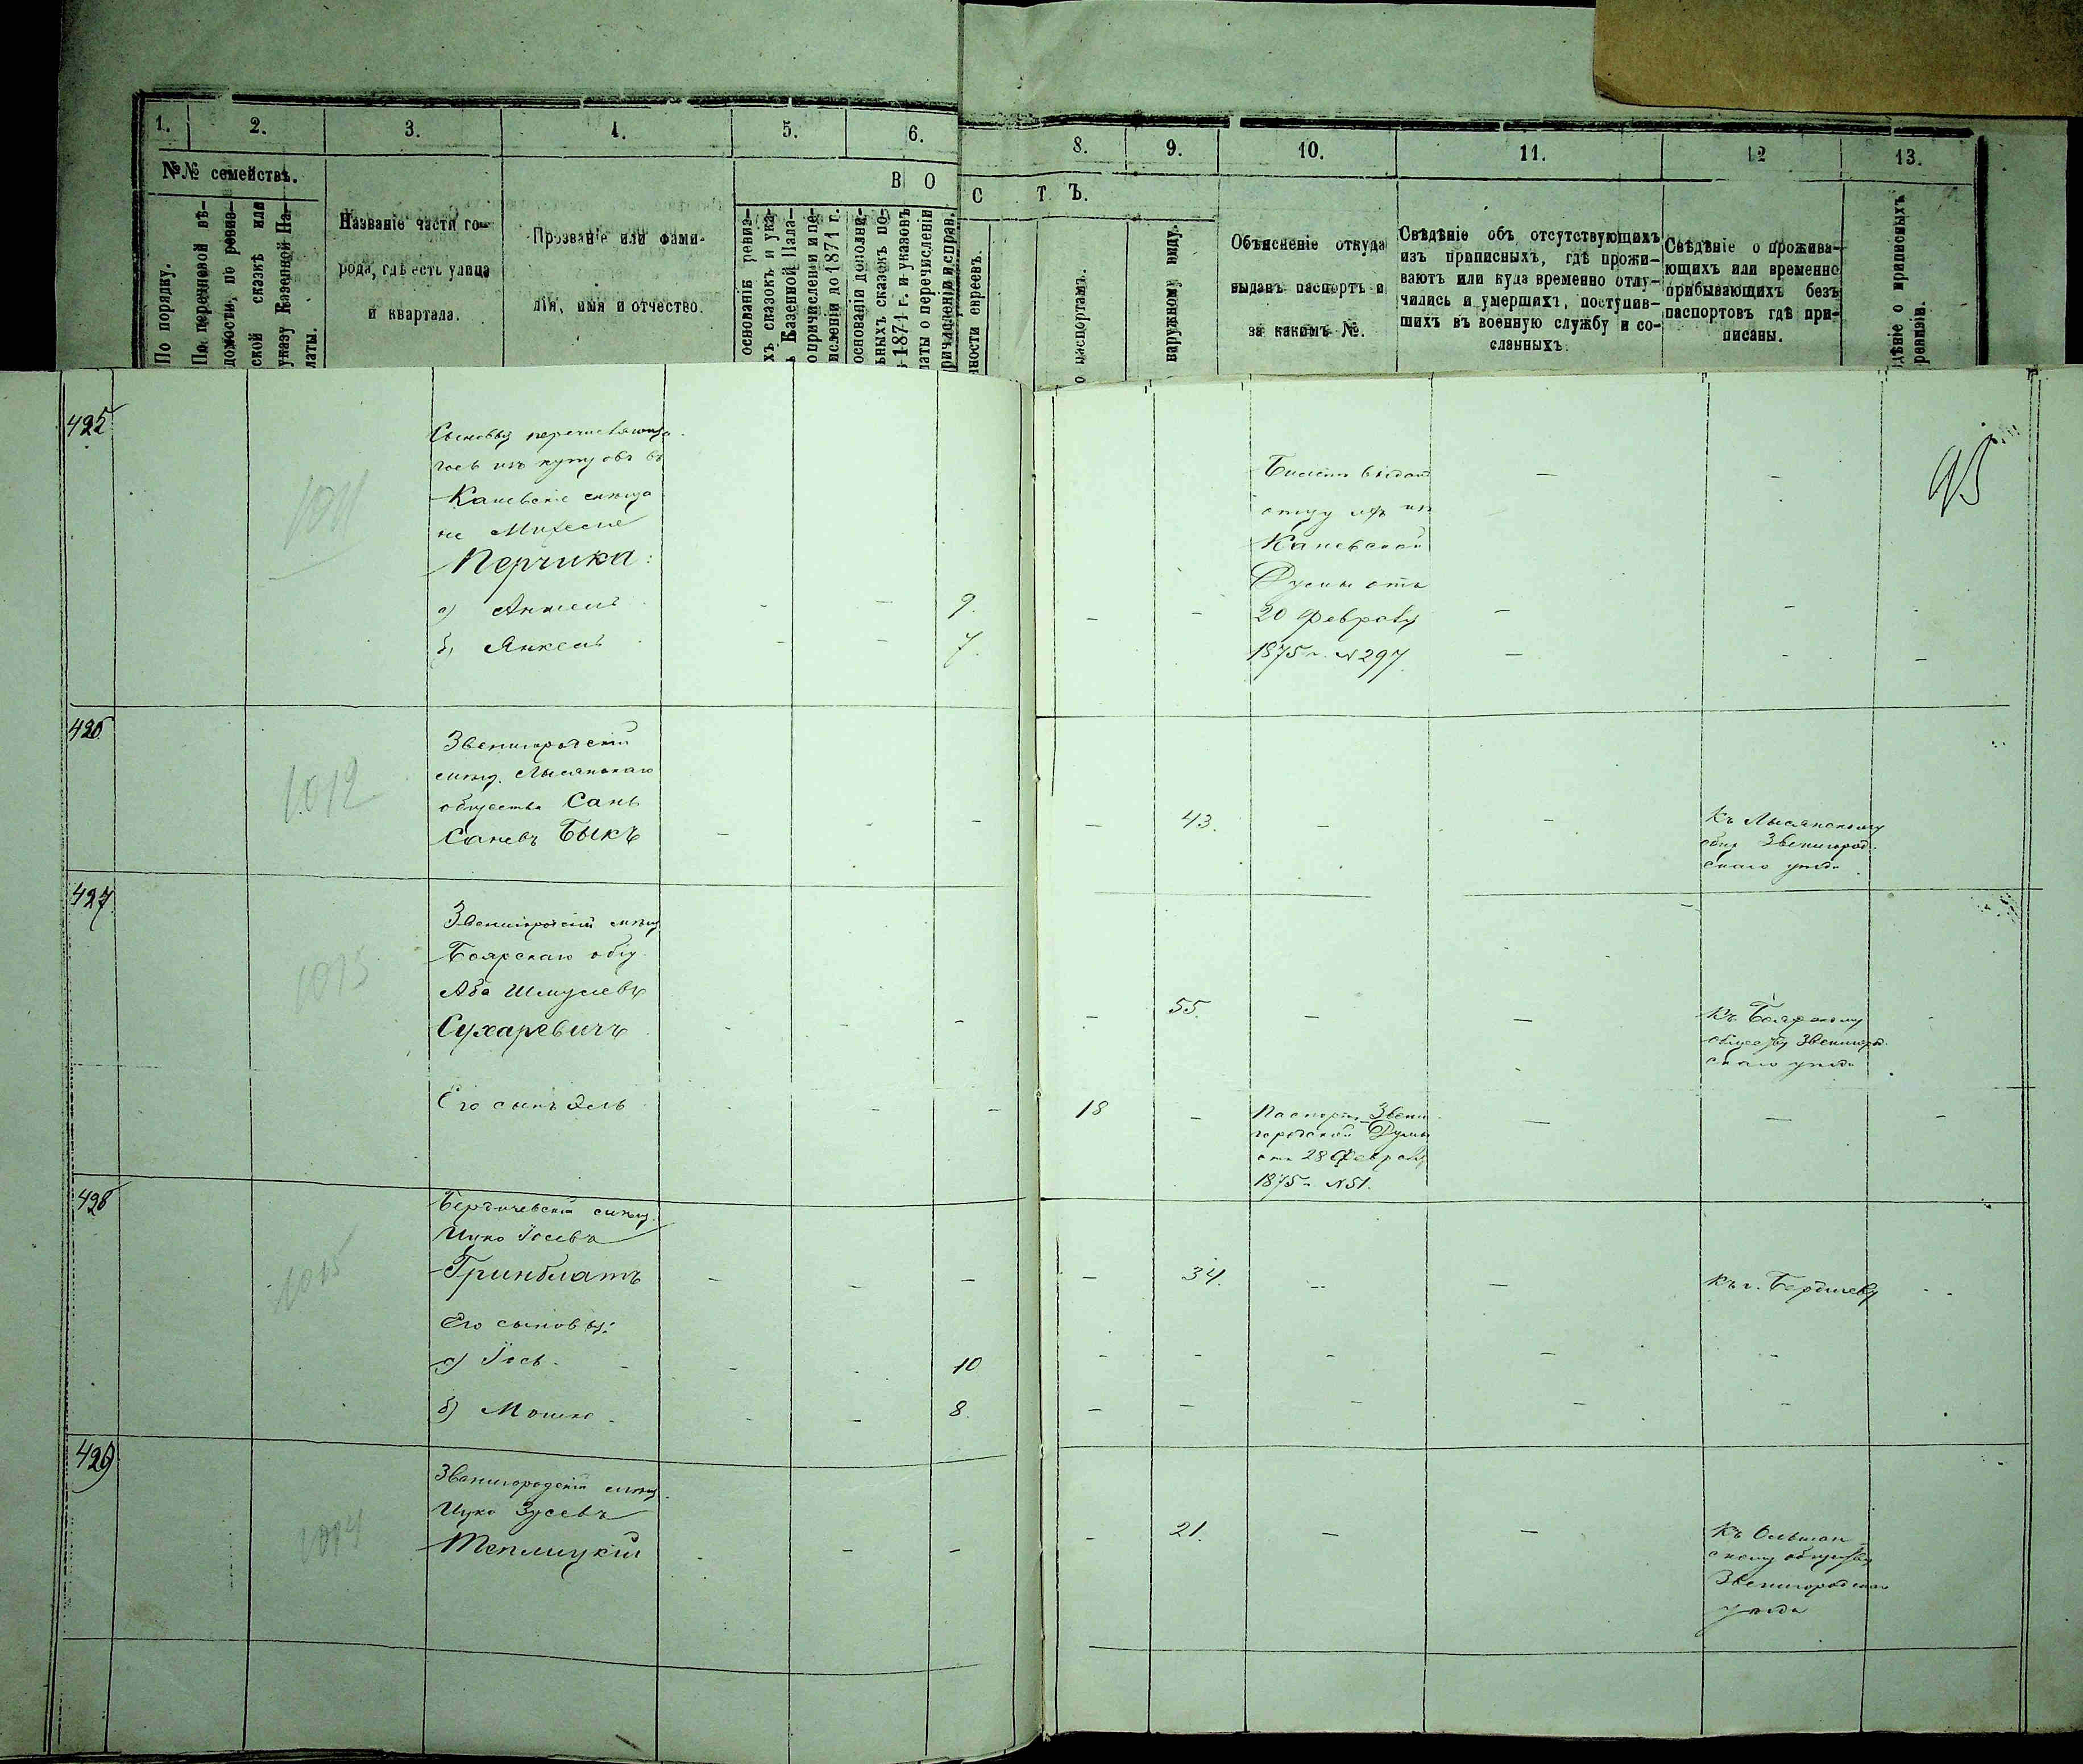 1. 2. 3. 4. 5. 6.
№№ семействъ.
В О
По порядку.
По перечневой вѣ-
домости, по ревиз-
ской сказкѣ или
указу Казенной Па-
латы.
Названіе части го-
рода, гдѣ есть улица
и квартала.
Прозваніе или фами-
лія, имя и отчество.
основаніѣ ревиз-
хъ сказокъ и ука-
ъ Казенной Пала-
о причисленіи и пе-
исленіи до 1871 г.
основаніи дополни-
ьныхъ сказокъ по-
1871 г. и указовъ
латы о перечисленіи
ричисленіи и справ.
8. 9. 10. 11. 12 13.
С Т Ъ.
ности евреевъ.
о паспортамъ.
наружному виду.
Объясненіе откуда
выданъ паспортъ и
за какимъ №.
Свѣдѣніе объ отсутствующихъ
изъ приписныхъ, гдѣ прожи-
ваютъ или куда временно отлу-
чились и умершихъ, поступив-
шихъ въ военную службу и со-
сланныхъ.
Свѣдѣніе о прожива-
ющихъ или временно
прибывающихъ безъ
паспортовъ гдѣ при-
писаны.
дѣніе о приписныхъ
ревизіи.
95
425
1011
Сыновья
Каневскіе
Перчика:
а) Аншель - - 9. - -
б) Янкель - - 7.
Билетъ выданъ
отцу ихъ изъ
Каневской
Думы отъ
20 Февраля
1875 г. №297
426
1012
Звенигородскій
мѣщ. Лысянскаго
общества Сань
Саневъ Быкъ - - - - 43. - -
Къ Лысянскому
общ. Звенигород-
скаго уѣзда
427
1013
Звенигородскій мѣщ.
Боярскаго общ.
Аба Шмулевъ
Сухаревичъ - - - - 55. - -
Къ Боярскому
обществу Звенигород-
скаго уѣзда
Его сынъ Эль - - - 18 -
Паспортъ Звени-
городской Думы
отъ 28 Февраля
1875 г. №51.
428
1015
Бердичевскій мѣщ.
Ицко Іосевъ
Гринблатъ - - - - 34. - - Къ г. Бердичеву
Его сыновья:
а) Іось - - - 10 - - - - -
б) Мошко - - - 8. - - - - -
429
1014
Звенигородскій мѣщ.
Ицко Зусевъ
Теплицкій - - - - 21. - -
Къ Ольшан-
скому обществу
Звенигородскаго
уѣзда